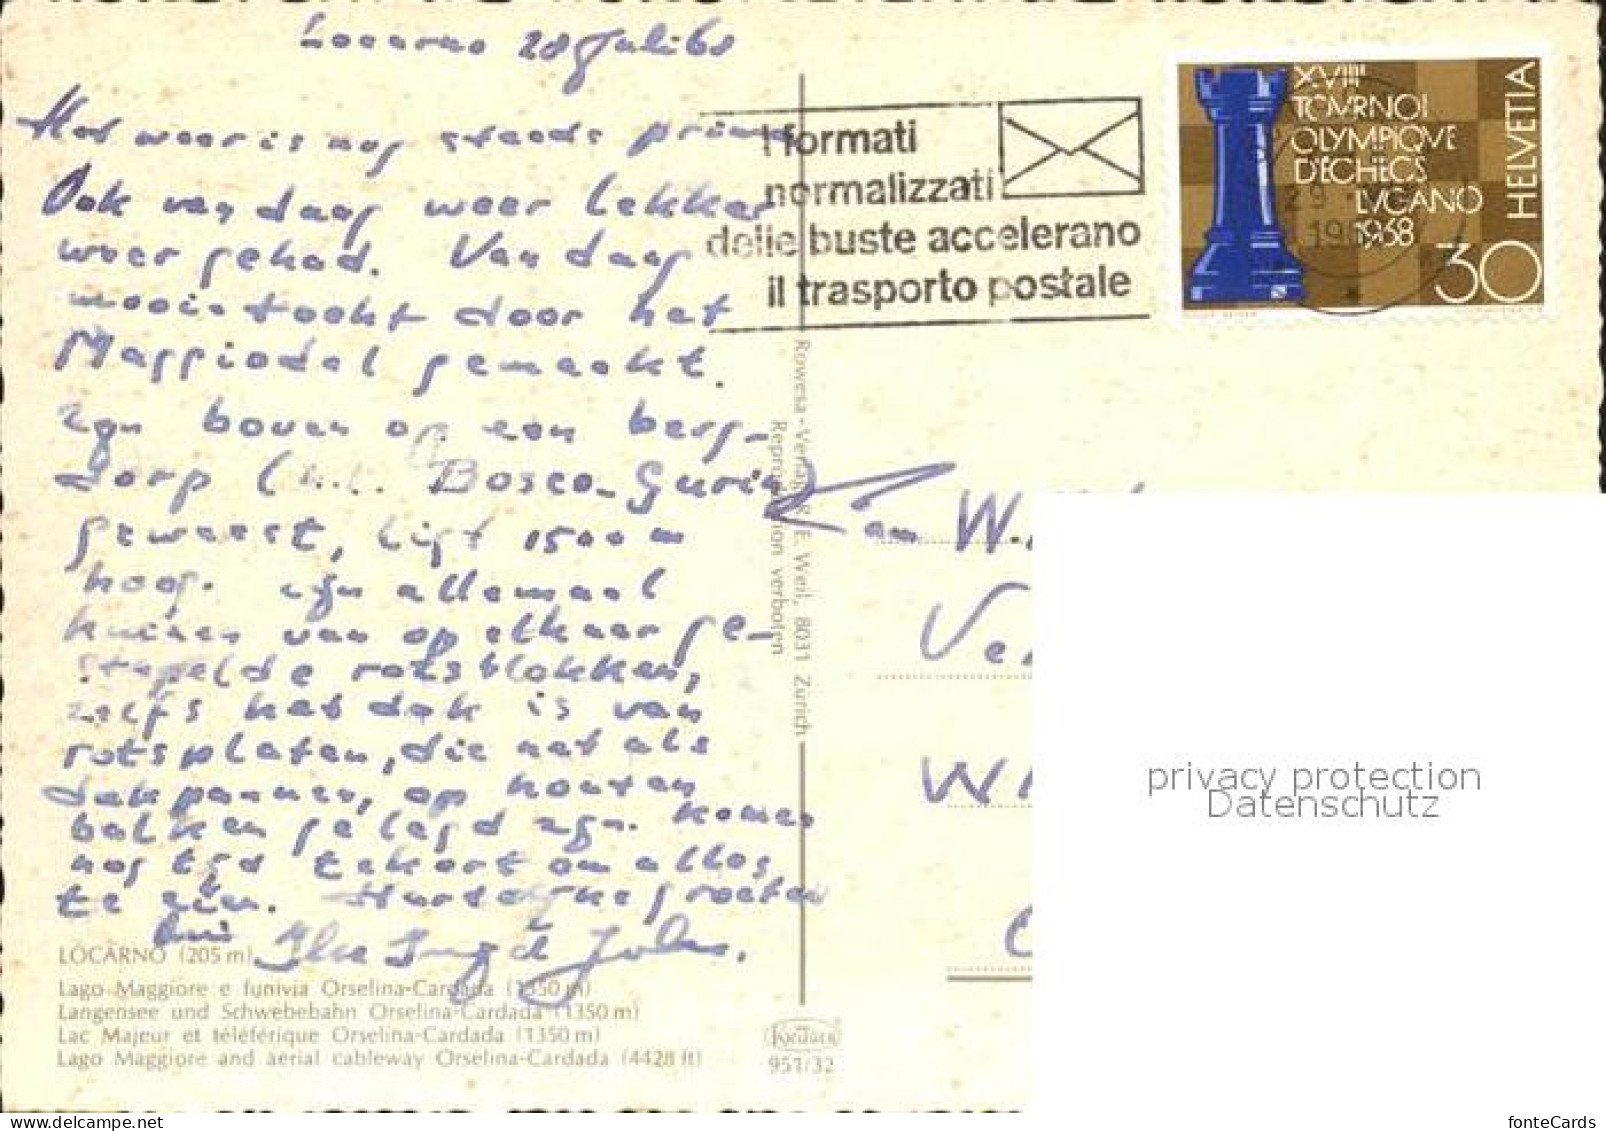 Locarno 28 Juli 68
Het weer is nog steeds prima
Ook vandaag weer lekker
weer gehad. Vandaag
mooie tocht door het
Maggiodal gemaakt.
zijn boven op een berg-
dorp Bosco-Gurin
geweest, ligt 1500 m
hoog. zijn allemaal
huizen van op elkaar ge-
stapelde rotsblokken,
zelfs het dak is van
rotsplaten, die net als
dakpannen, op houten
balken gelegd zijn. Komen
nog tijd tekort om alles
te zien. Hartelijke groeten
I formati
normalizzati
delle buste accelerano
il trasporto postale
XVIIIe
TOVRNOI
OLYMPIQVE
D'ECHECS
LVGANO
1968
HELVETIA
30
29
Rowesa-Verlag, E. Weil, 8031 Zürich
Reproduktion verboten
Fam W.
Ve
privacy protection
Datenschutz
LOCARNO (205 m)
Lago Maggiore e funivia Orselina-Cardada (1350 m)
Langensee und Schwebebahn Orselina-Cardada (1350 m)
Lac Majeur et téléférique Orselina-Cardada (1350 m)
Lago Maggiore and aerial cableway Orselina-Cardada (4428 ft)
Krüger
957/32
fonteCards